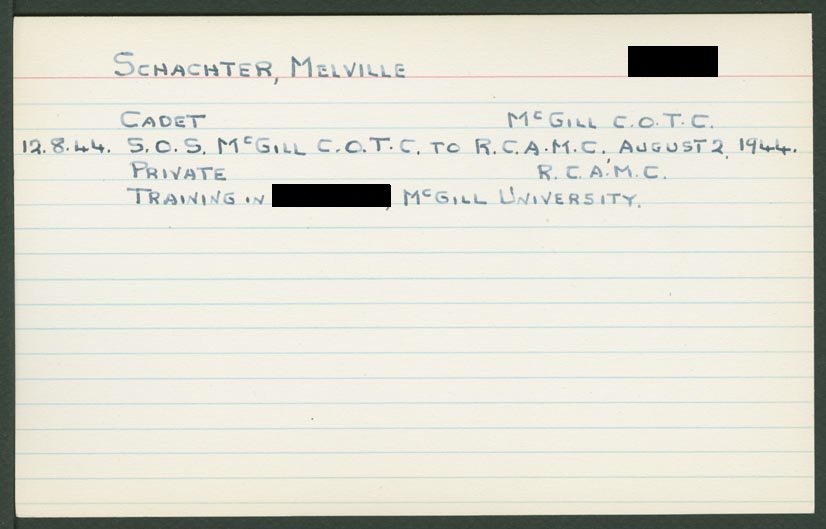 SCHACHTER, MELVILLE
CADET McGILL C.O.T.C.
12.8.44. S.O.S. McGILL C.O.T.C. TO R.C.A.M.C. AUGUST 2, 1944.
PRIVATE R.C.A.M.C.
TRAINING IN , McGILL UNIVERSITY.